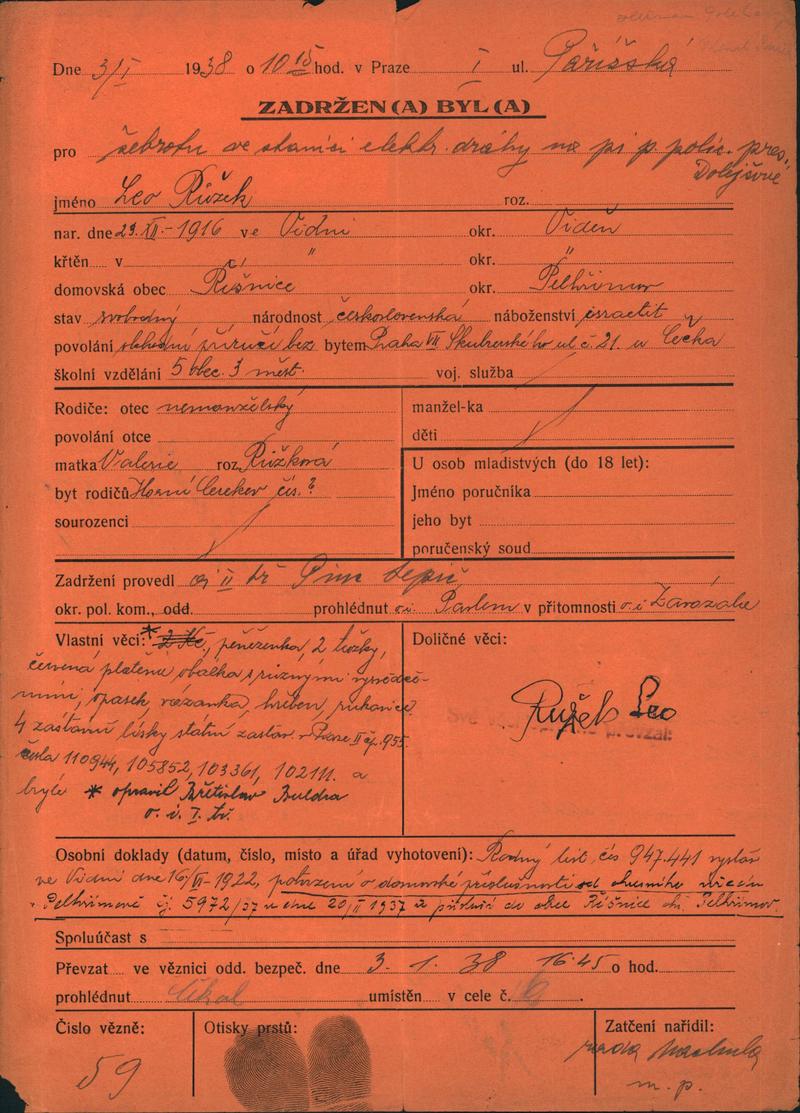 Dne 3/I 1938 o 10 15 hod. v Praze I ul. Pařížská
ZADRŽEN(A) BYL(A)
pro žebrotu ve stanici elektr. dráhy na p. polic. pres.
Dolejšově
jméno Leo Růžek roz.
nar. dne 29. XII. 1916 ve Vídni okr. Vídeň
křtěn v " okr. "
domovská obec Řišnice okr. Pelhřimov
stav svobodný národnost československá náboženství israelit
povolání obchodní příručí bez bytem Praha VII Skuherského ul. č. 21. u Čecha
školní vzdělání 5 obec. 3 měšť. voj. služba
Rodiče: otec nemanželský
manžel-ka
povolání otce
děti
matka Valerie roz. Růžková
U osob mladistvých (do 18 let):
byt rodičů Horní Cerekev čís. ?
Jméno poručníka
sourozenci
jeho byt
poručenský soud
Zadržení provedl
okr. pol. kom., odd. prohlédnut Pavlem v přítomnosti
Vlastní věci: * 2 Kč, peněženka, 2 tužky,
červená plátěná obálka s různými vysvědče-
ními, opasek, vázanka, hřeben, rukavice
4 zástavní lístky státní zastav. v Praze II čj. 955
čísla 110944, 105852, 103361, 102111. a
brýle * opravil Břetislav Buldra
Doličné věci:
Ružek Leo
převzal:
Osobní doklady (datum, číslo, místo a úřad vyhotovení): Rodný list čís 947.441 vystav.
ve Vídni dne 16/VI-1922, potvrzení o domovské příslušnosti od okresního úřadu
v Pelhřimově čj. 5972/37 ze dne 20/II 1937 že přísluší do obce Řišnice okr. Pelhřimov.
Spoluúčast s
Převzat ve věznici odd. bezpeč. dne 3. 1. 38 16.45 o hod.
prohlédnut umístěn v cele č. 6.
Číslo vězně:
59
Otisky prstů:
Zatčení nařídil:
rada
m. p.